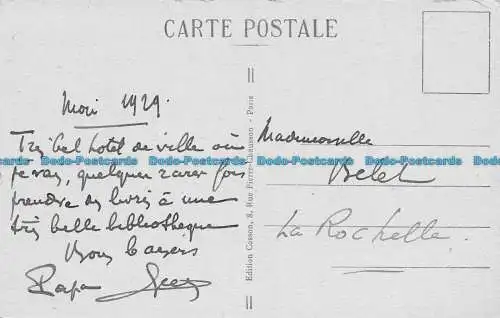 CARTE POSTALE
Mai 1929.
Très bel hotel de ville où
je vais, quelques rares fois
prendre des livres à une
très belle bibliothèque
Bons baisers
Papa
Mademoiselle
Belet
La Rochelle.
Edition Cosson, 8, Rue Pierre-Chausson - Paris
Postcards Postcards Postcards Postcards Postcards Postcards